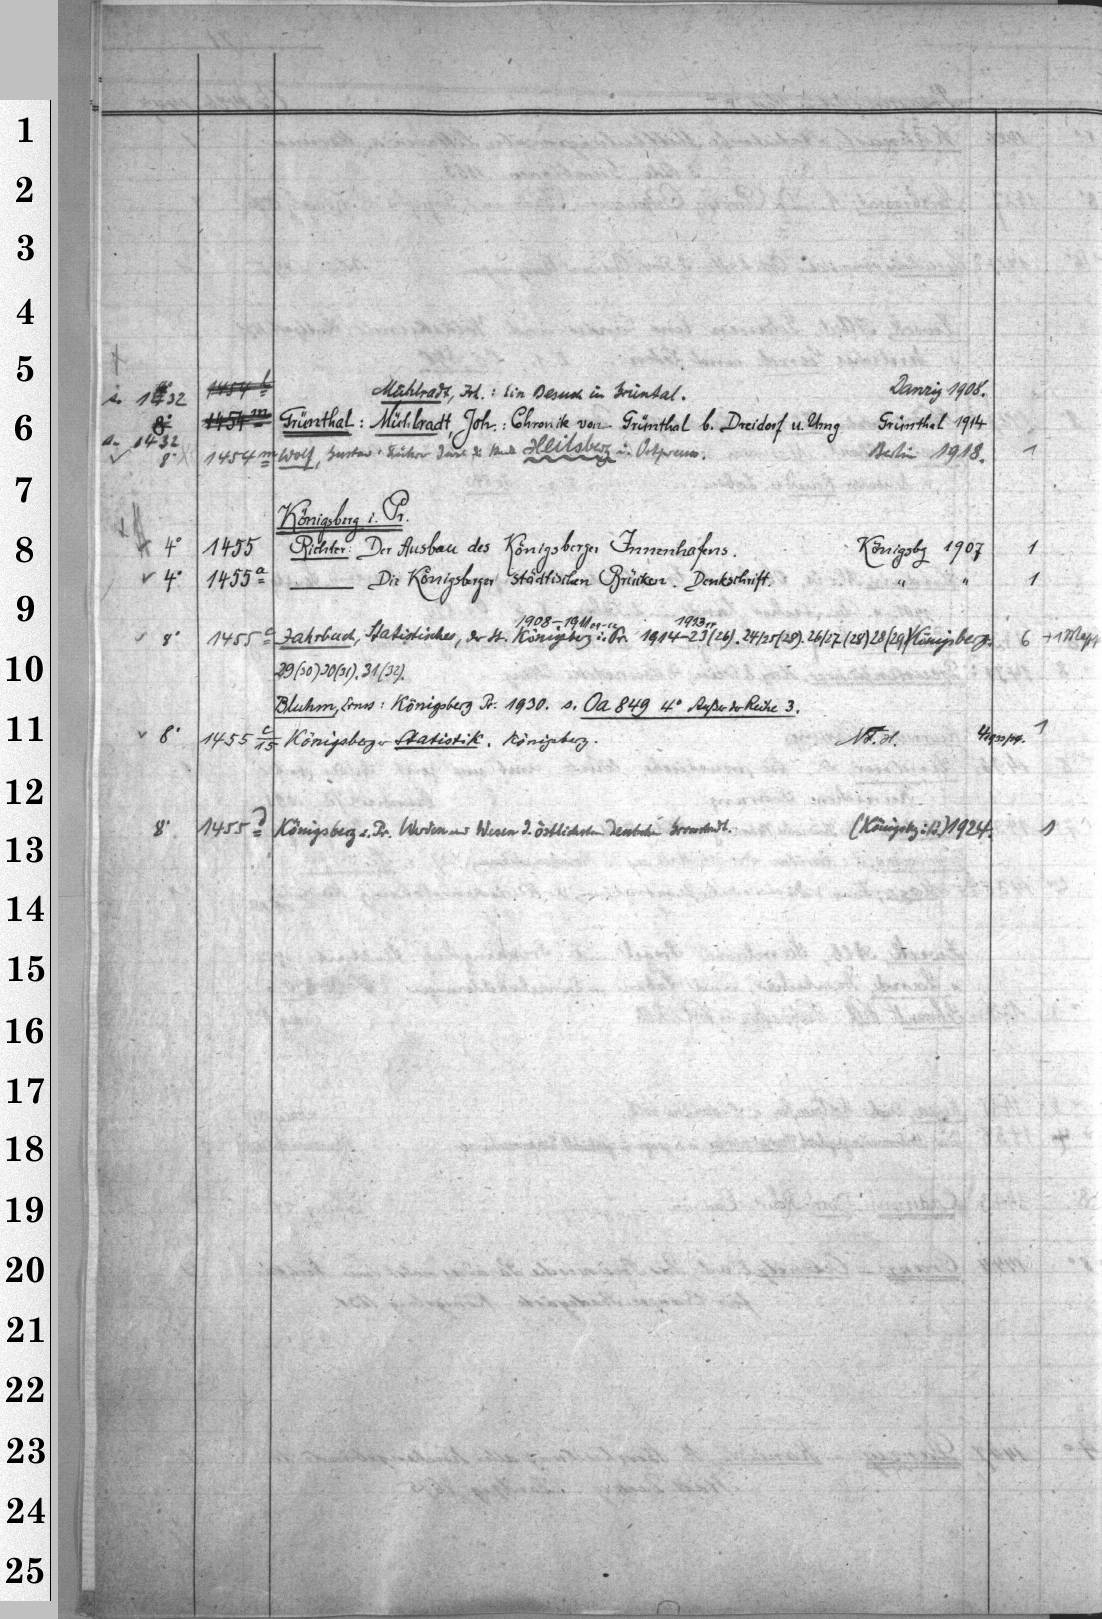 1
2
3
4
5
s. 1432 1454 l Mühlradt, Joh.: Ein Besuch in Grüntal. Danzig 1908.
6 8° 1454 m Grünthal: Mühlradt, Joh.: Chronik von Grünthal b. Dreidorf u. Umg Grünthal 1914
s. 1432
8° 1454 m Wolf, Gustav: Heilsberg in Ostpreuss. Berlin 1918. 1
7
Königsberg i. Pr.
8 4° 1455 Richter: Der Ausbau des Königsberger Innenhafens. Königsbg 1907 1
4° 1455 a Die Königsberger städtischen Brücken. Denkschrift. " " 1
9
1908-1911 1933
8° 1455 c Jahrbuch, Statistisches, der St. Königsberg i. Pr. 1914-23(26). 24/25(28). 26/27(28) 28(29) Königsberg. 6 +1 Mapp
10 29(30) 30(31). 31(32).
Bluhm, Erns: Königsberg Pr. 1930. s. Oa 849 4° Außer der Reihe 3.
11 8° 1455 c/15 Königsberger Statistik. Königsberg. Nr. 21. 1
12
8° 1455 d Königsberg i. Pr. Werden und Wesen d. östlichsten deutschen Grossstadt. (Königsbg i. Pr.) 1924. 1
13
14
15
16
17
18
19
20
21
22
23
24
25